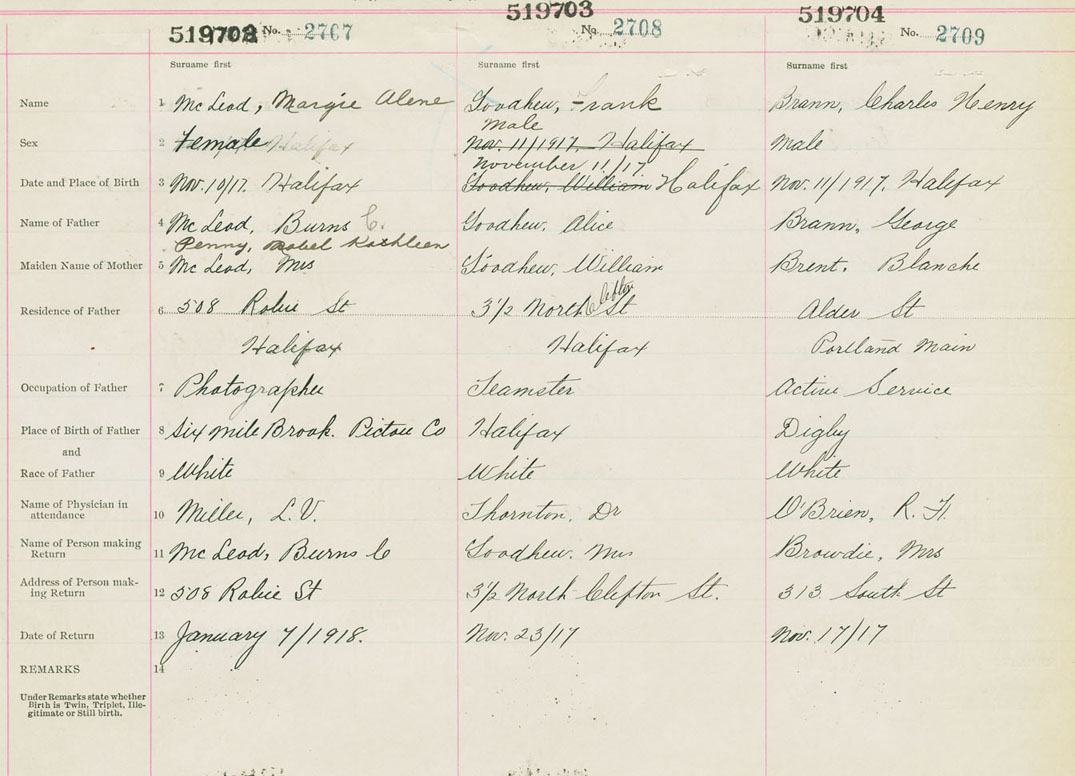 519702 No. 2767
519703 No. 2708
519704 No. 2709
Surname first Surname first Surname first
Name 1 McLeod, Margie Alene Goodhew, Frank Brann, Charles Henry
Male
Sex 2 Female Halifax Nov. 11/1917, Halifax Male
November 11/17
Date and Place of Birth 3 Nov. 10/17. Halifax Goodhew, William Halifax Nov. 11/1917. Halifax
Name of Father 4 McLeod, Burns C. Goodhew, Alice Brann, George
Penny, Mabel Kathleen
Maiden Name of Mother 5 McLeod, Mrs Goodhew, William Brent. Blanche
Clifton
Residence of Father 6 508 Robie St 3 1/2 North St Alder St
Halifax Halifax Portland Main
Occupation of Father 7 Photographer Teamster Active Service
Place of Birth of Father 8 Six mile Brook. Pictou Co Halifax Digby
and
Race of Father 9 White White White
Name of Physician in
attendance 10 Miller, L.V. Thornton, Dr O'Brien, R. F.
Name of Person making
Return 11 McLeod, Burns C Goodhew. Mrs Browdie, Mrs
Address of Person mak-
ing Return 12 508 Robie St 3 1/2 North Clifton St. 313 South St
Date of Return 13 January 7/1918. Nov. 23/17 Nov. 17/17
REMARKS 14
Under Remarks state whether
Birth is Twin, Triplet, Ille-
gitimate or Still birth.